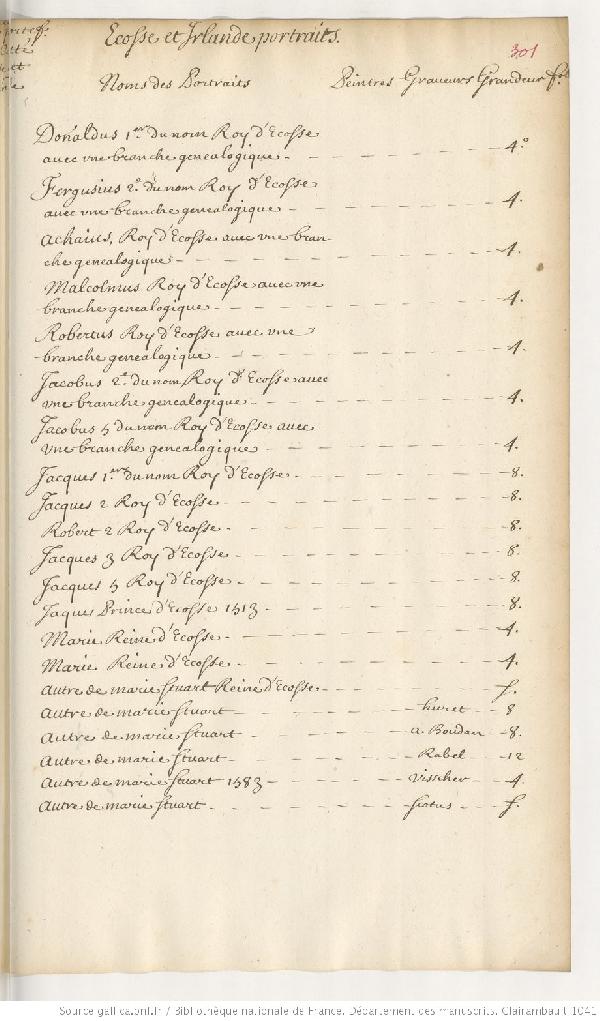 Ecosse et Irlande, portraits.
301
Noms des Portraits Peintres Graveurs Grandeur
Donaldus 1.er du nom Roy d'Ecosse
avec vne branche genealogique 4.º
Fergusius 2.e du nom Roy d'Ecosse
avec vne branche genealogique 4.
Achaius, Roy d'Ecosse avec vne bran-
che genealogique 4.
Malcolmus Roy d'Ecosse avec vne
branche genealogique 4.
Robertus Roy d'Ecosse avec vne
branche genealogique 4.
Jacobus 2.e du nom Roy d'Ecosse avec
vne branche genealogique 4.
Jacobus 5 du nom Roy d'Ecosse avec
vne branche genealogique 4.
Jacques 1.er du nom Roy d'Ecosse 8.
Jacques 2 Roy d'Ecosse 8.
Robert 2 Roy d'Ecosse 8.
Jacques 3 Roy d'Ecosse 8.
Jacques 5 Roy d'Ecosse 8.
Jaques Prince d'Ecosse 1513 8.
Marie Reine d'Ecosse 4.
Marie Reine d'Ecosse 4.
Autre de marie Stuart Reine d'Ecosse f.
Autre de marie Stuart huret 8
Autre de marie Stuart a Boudan 8.
Autre de marie Stuart Rabel 12
Autre de marie Stuart 1583 Visscher 4.
Autre de marie Stuart f.
Source gallica.bnf.fr / Bibliothèque nationale de France. Département des manuscrits. Clairambault 1041